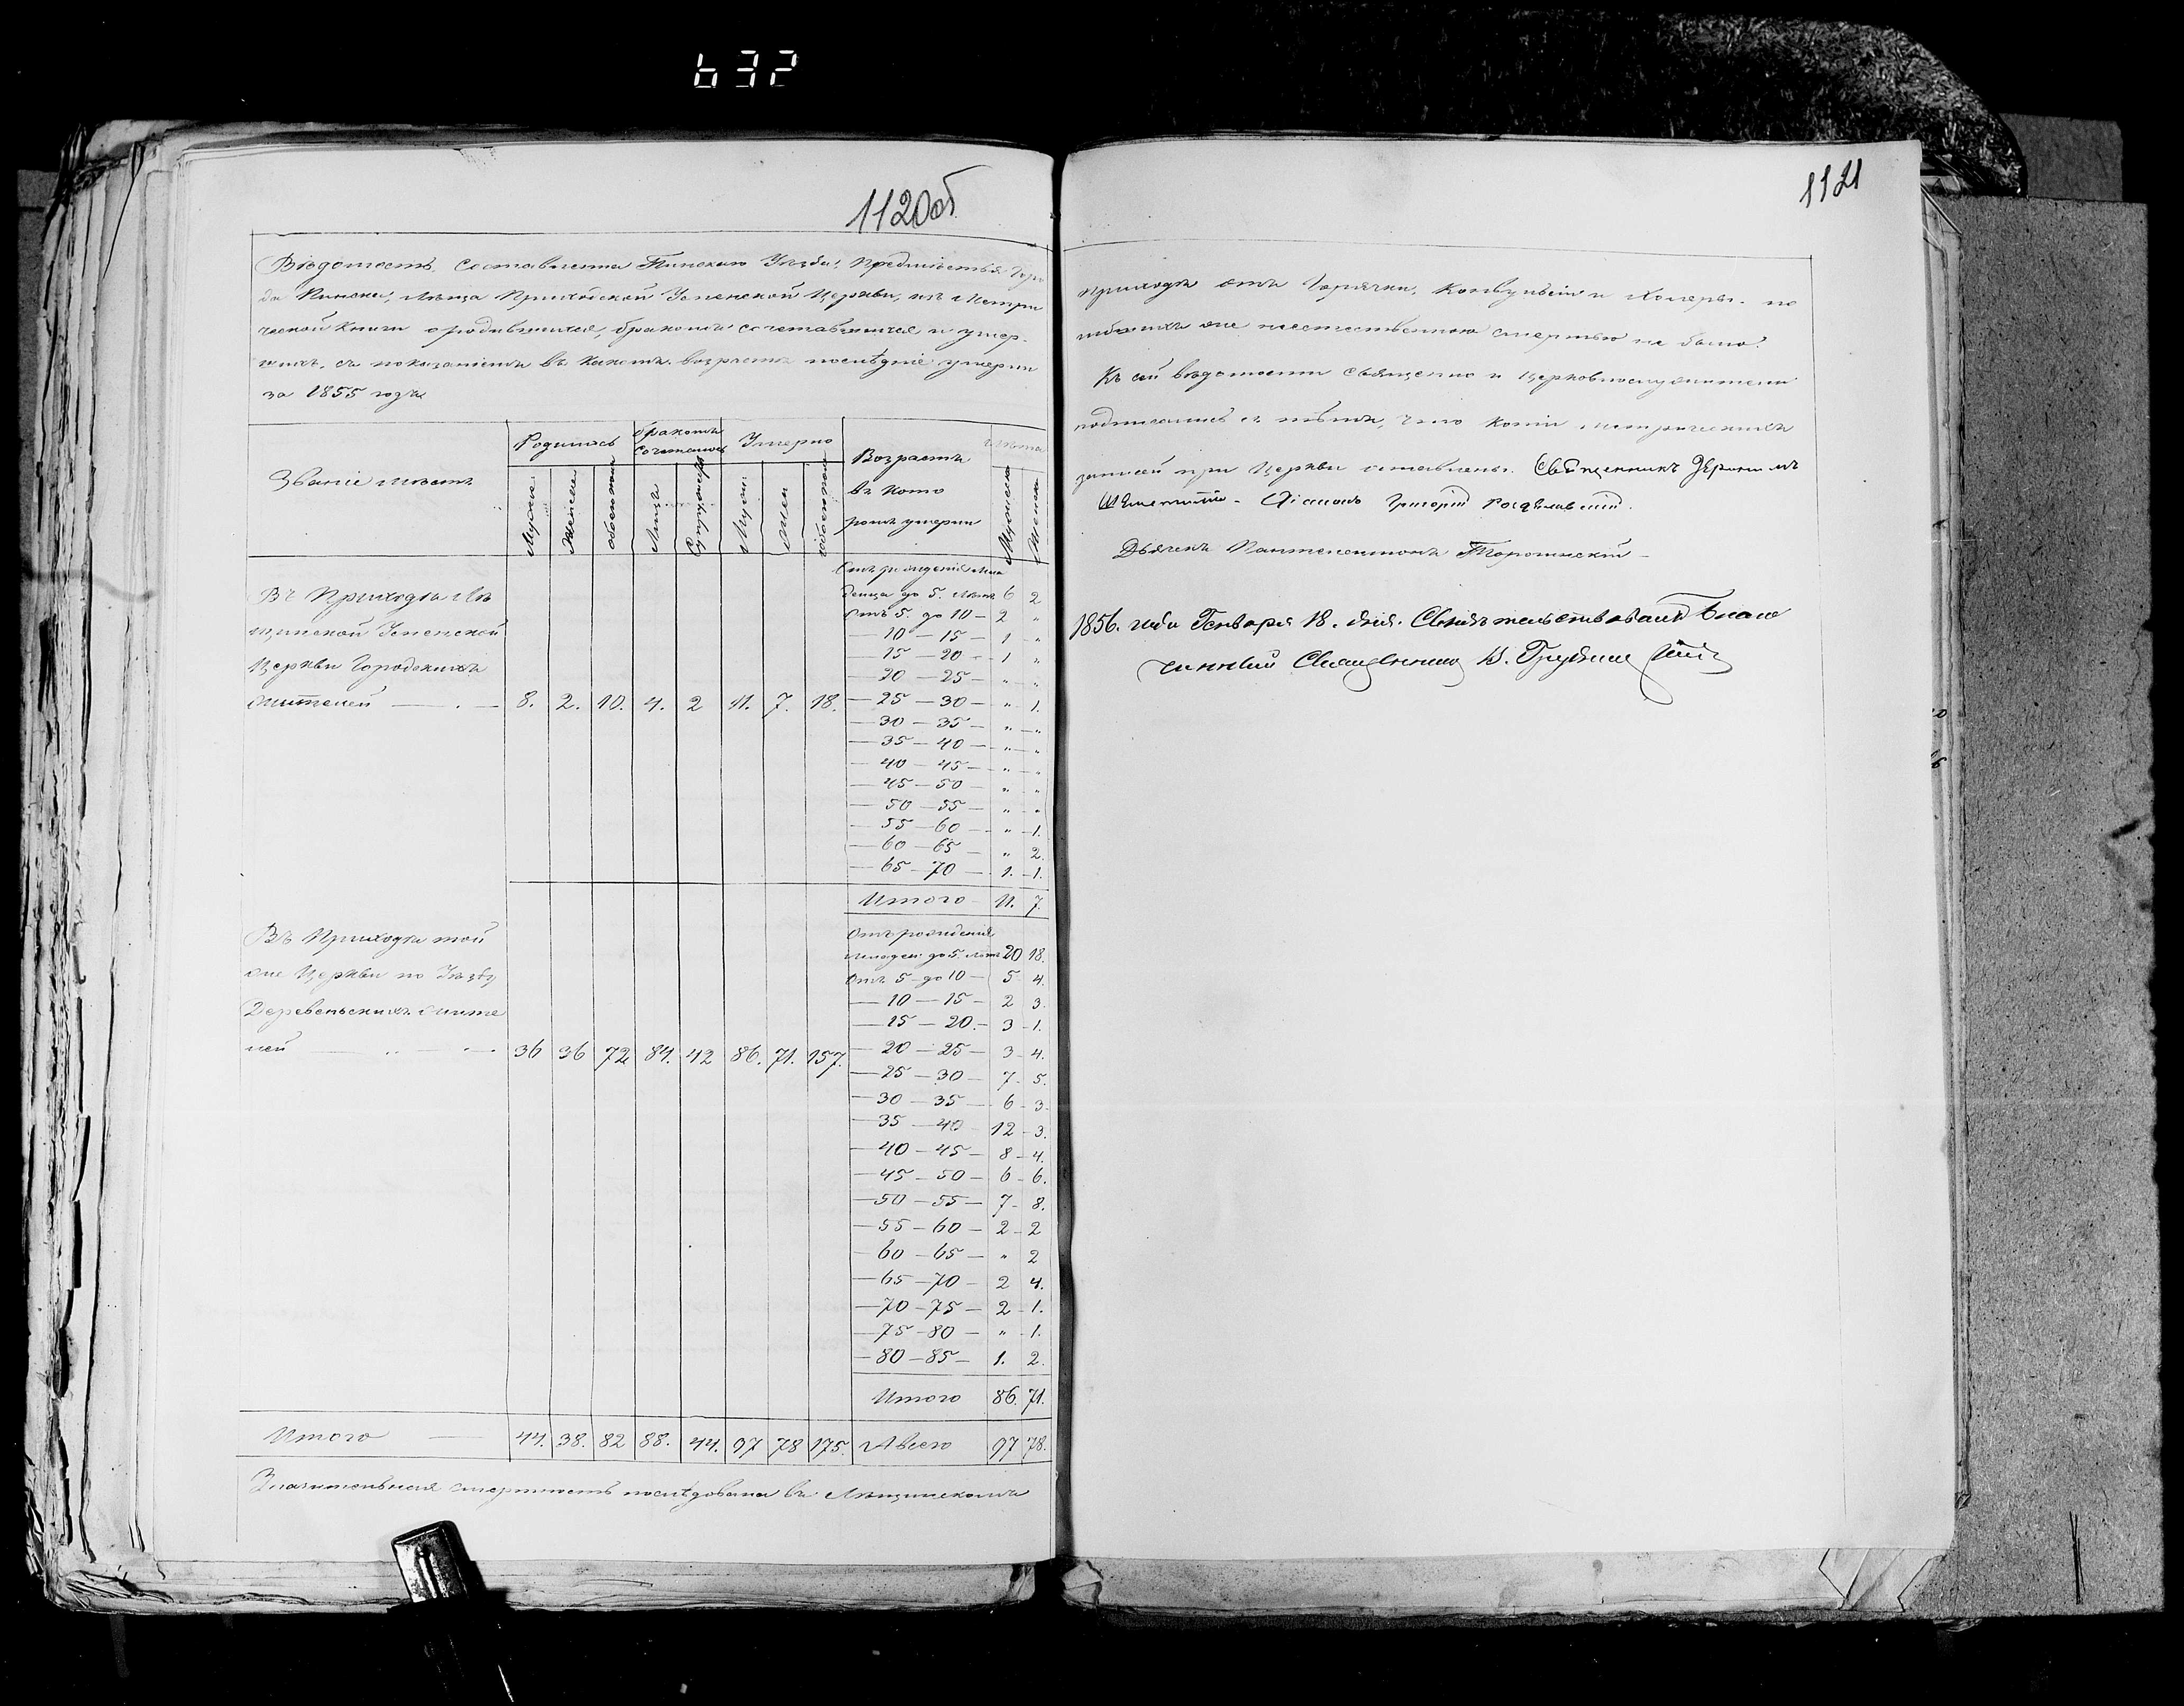 632
1120об
Вѣдомость, составлена Пинскаго Уѣзда, Предмѣстья Горо
да Пинска, Лѣща Приходской Успенской Церкви, изъ Метри
ческой Книги о родившихся, бракомъ сочетавшихся и умер-
шихъ, съ показаніемъ въ какомъ возрастѣ послѣдніе умерли
за 1855 годъ
Званіе мѣстъ
Родилось
бракомъ сочеталось
Умерло
Возрастъ въ кото ромъ умерли
Мужск.
Женска
обоего пола
Лицъ
Супружествъ
Мужс.
Жен
обоего пола
Мужеска
Женска
Въ Приходѣ Лѣ
щинской Успенской
Церкви Городскихъ
жителей — 8. 2. 10. 4. 2 11. 7. 18.
Отъ рожденія мла
денца до 5. лѣтъ 6 2
Отъ 5. до 10 — 2 „
— 10 — 15 — 1 „
— 15 — 20 — 1 „
— 20 — 25 — „ „
— 25 — 30 — „ 1.
— 30 — 35 — „ „
— 35 — 40 — „ „
— 40 — 45 — „ „
— 45 — 50 — „ „
— 50 — 55 — „ „
— 55 — 60 — „ 1.
— 60 — 65 — „ 2.
— 65 — 70 — 1. 1.
Итого 11. 7.
Въ Приходѣ той
же Церкви по Уѣзду
Деревенскихъ жите
лей — 36 36 72 84. 42 86. 71. 157.
Отъ рожденія
младен: до 5. лѣтъ 20 18.
Отъ 5 до 10 — 5 4.
— 10 — 15 — 2 3.
— 15 — 20. — 3 1.
— 20 — 25 — 3 4.
— 25 — 30 — 7 5.
— 30 — 35 — 6 3.
— 35 — 40 12 3.
— 40 — 45 — 8 4.
— 45 — 50 — 6 6.
— 50 — 55 — 7 8.
— 55 — 60 — 2 2
— 60 — 65 — „ 2
— 65 — 70 — 2 4.
— 70 — 75 — 2 1.
— 75 — 80 — „ 1.
— 80 — 85 — 1. 2.
Итого 86. 71.
Итого — 44. 38. 82 88. 44. 97 78 175. Авсего 97 78.
Значительная смертность послѣдовала въ Лѣщинскомъ
1121
приходѣ отъ Горячки, Конвульсіи и Холеры. по
гибшихъ же неестественною смертью не было.
Къ сей вѣдомости Священно и Церковнослужители
подписались съ тѣмъ, что копіи метрическихъ
записей при Церкви оставлены. Священникъ
Діаконъ Григорій
Дьячекъ Пантелеимонъ
1856. года Генваря 18. дня. Свидѣтельствовалъ Благо
чинный Священникъ В.